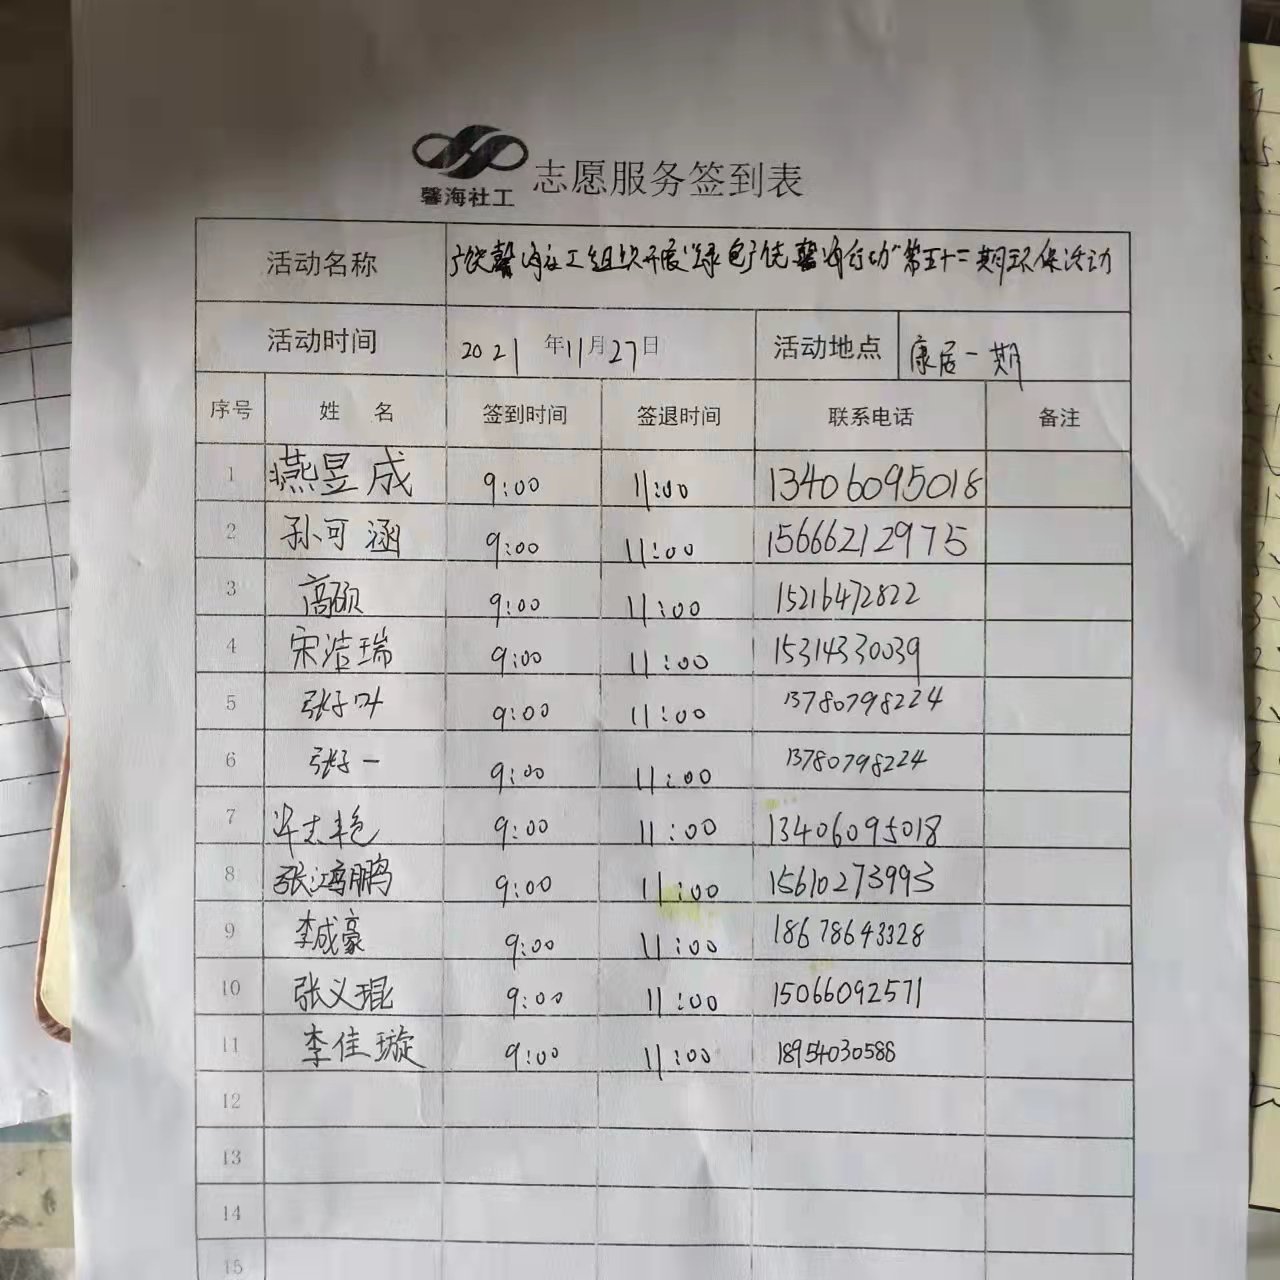 馨海社工 志愿服务签到表
活动名称 广饶馨海社工组织开展"绿色广饶馨海行动"第五十二期环保活动
活动时间 2021年11月27日 活动地点 康居一期
序号 姓 名 签到时间 签退时间 联系电话 备注
1 燕昱成 9:00 11:00 13406095018
2 孙可涵 9:00 11:00 15666212975
3 高硕 9:00 11:00 15216472822
4 宋洁瑞 9:00 11:00 15314330039
5 张子叶 9:00 11:00 13780798224
6 张子一 9:00 11:00 13780798224
7 许志艳 9:00 11:00 13406095018
8 张鸿鹏 9:00 11:00 15610273993
9 李成豪 9:00 11:00 18678643328
10 张义琨 9:00 11:00 15066092571
11 李佳璇 9:00 11:00 18954030588
12
13
14
15